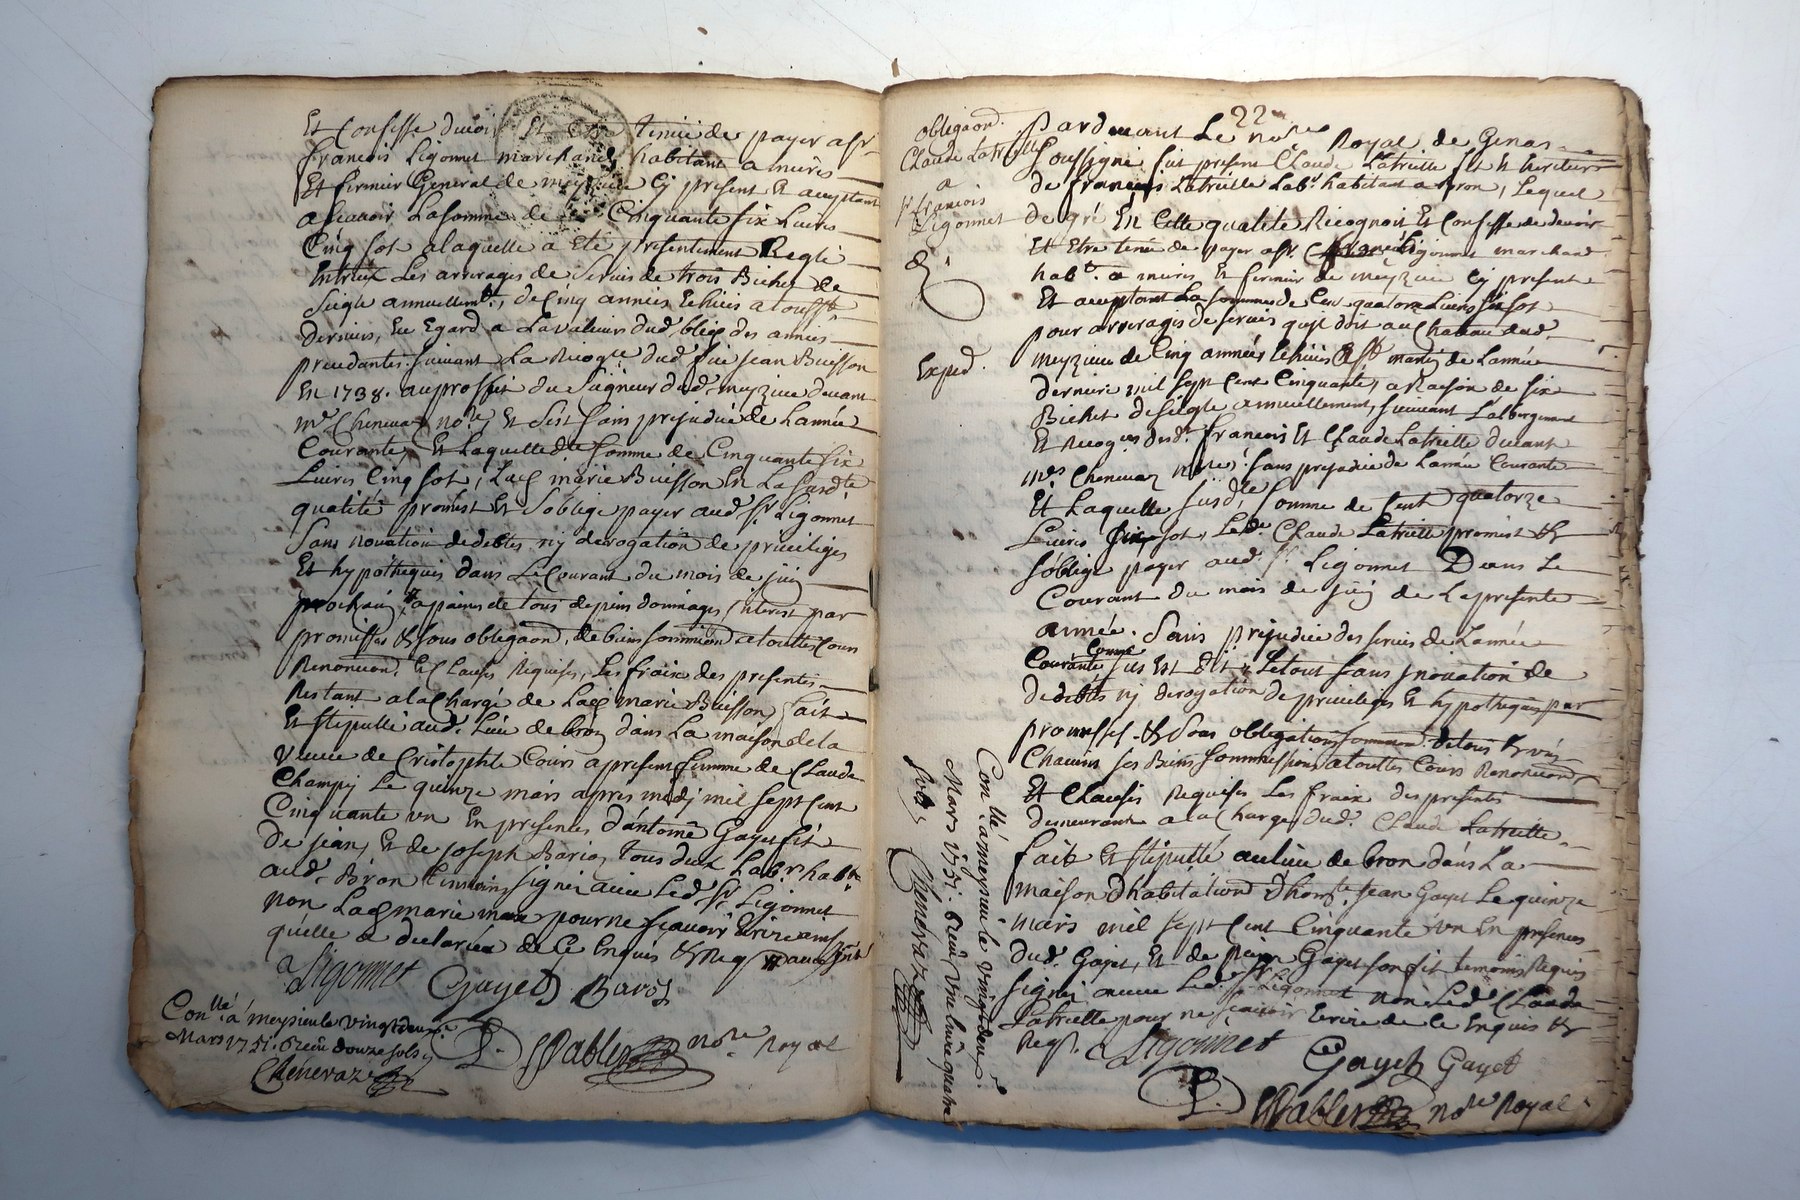 Et Confesse devoir Et Etre tenüe de payer a sr
francois Ligonnet marchand habitant a muris
Et fermier General de meyzieu cy present Et acceptant
a scavoir La somme de Cinquante six Livres
Cinq sol a laquelle a Eté presentement Reglé
Entreux Les arrerages de servis de trois Bichet de
Siegle annuellemt, de Cinq années Echües a
derniers, Eu Egard a La valeur dud. bled des années
precedantes suivant La Recogte dud. feu jean Buisson
En 1738. au proffit du Seigneur dud. meyzieu devant
me Chenevaz nore, Et C'est sans prejudice de Lannée
Courante, Et Laquelle dte somme de Cinquante six
Livres Cinq sol, Lad. marie Buisson En La susdte
qualité promet Et s'oblige payer aud. sr. Ligonnet
sans novation de debtes ny derogation de privileges
Et hypotheques dans Le Courant du mois de juin
prochain, a peine de tous depens dommages interest par
promesses & sous obligaon. de biens soumission a touttes Cours
Renonciaon. Et Clauses Requises, Les fraix des presentes
Restant a la Charge de Lad. marie Buisson, fait
Et stipullé aud. Lieu de bron dans La maison de la
veuve de Cristophle Cours a present femme de Claude
Champin Le quinze mars apres midy mil sept Cent
Cinquante un En presences d'antoine Gayet fils
de jean, Et de joseph Barioz tous deux Labrs. habts.
aud. Bron temoins signés avec Led. sr. Ligonnet
non Lad. marie pour ne scavoir Ecrire ainsy
qu'elle a declarée de Ce Enquise & Reqse
Ligonnet Gayet Barioz
Conllé a meysieu le vingt deux
Mars 1751. Receu douze sols
Chenevaz
Pabler nore Royal
22
obligaon.
Claude Latreille
a
sr. francois
Ligonnet
Exped.
Pardevant Le nore Royal de Genas
soussigné fut present Claude Latreille fils Et heritier
de francois Latreille Labr. habitant a bron, Lequel
de gré En Cette qualité Recognoit Et Confesse de devoir
Et Etre tenu de payer a sr. francois Ligonnet marchand
habt. a muris Et fermier de meyzieu cy present
Et acceptant La somme de Cent quatorze Livres six sol
pour arrerages de servis qu'il doit au Chateau dud.
meyzieu de Cinq années Echües a st. martin de Lannée
derniere mil sept Cent Cinquante, a Raison de six
Bichet de siegle annuellement, suivant L'albergement
Et Recogns. dud. francois Et Claude Latreille devant
mes Chenevaz nores. sans prejudice de Lannée Courante
Et Laquelle susdte. somme de Cent quatorze
Livres six sol, Led. Claude Latreille promet &
s'oblige payer aud. sr. Ligonnet Dans Le
Courant du mois de juin de La presente
année. Sans prejudice des servis de Lannée
Courante Comme sus Est dit, Le tout sans novation de
de debtes ny derogation de privileges Et hypotheques par
promesses & sous obligation de tous & un
Chacuns ses Biens soumissions a touttes Cours Renonciaons
Et Clauses Requises Les fraix des presentes
demeurant a la Charge dud. Claude Latreille.
fait Et stipullé au lieu de bron dans La
maison d'habitation d'honte. jean Gayet Le quinze
mars mil sept Cent Cinquante un En presences
dud. Gayet, Et de pierre Gayet son fils temoins Requis
signés avec Led. sr. Ligonnet non Led. Claude
Latreille pour ne scavoir Ecrire de Ce Enquis &
Reqs. Ligonnet Gayet Gayet
Pabler nore Royal
Conllé a meysieu le vingt deux
Mars 1751. Receu une livre quatre
sols Chenevaz